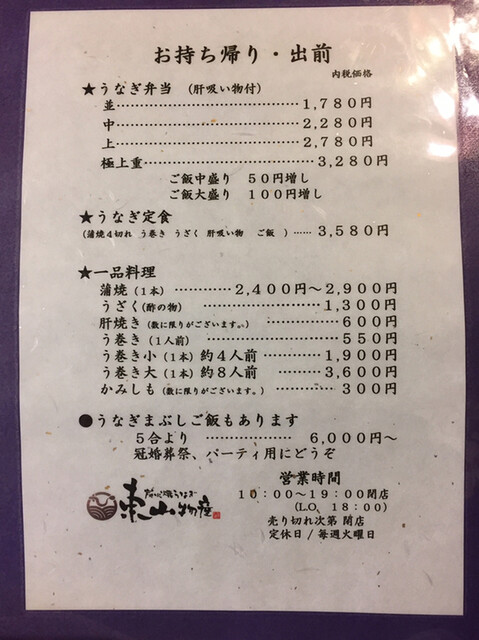 お持ち帰り・出前
内税価格
★うなぎ弁当 (肝吸い物付)
並……………………………1,780円
中……………………………2,280円
上……………………………2,780円
極上重………………………3,280円
ご飯中盛り 50円増し
ご飯大盛り 100円増し
★うなぎ定食
(蒲焼4切れ う巻き うざく 肝吸い物 ご飯 )……3,580円
★一品料理
蒲焼(1本)…………2,400円～2,900円
うざく(酢の物)…………………1,300円
肝焼き(数に限りがございます。)…………600円
う巻き(1人前)……………………550円
う巻き小(1本)約4人前…………1,900円
う巻き大(1本)約8人前…………3,600円
かみしも(数に限りがございます。)…………300円
●うなぎまぶしご飯もあります
5合より………………6,000円～
冠婚葬祭、パーティ用にどうぞ
営業時間
10:00～19:00閉店
(LO、18:00)
売り切れ次第 閉店
定休日/毎週火曜日
東山物産